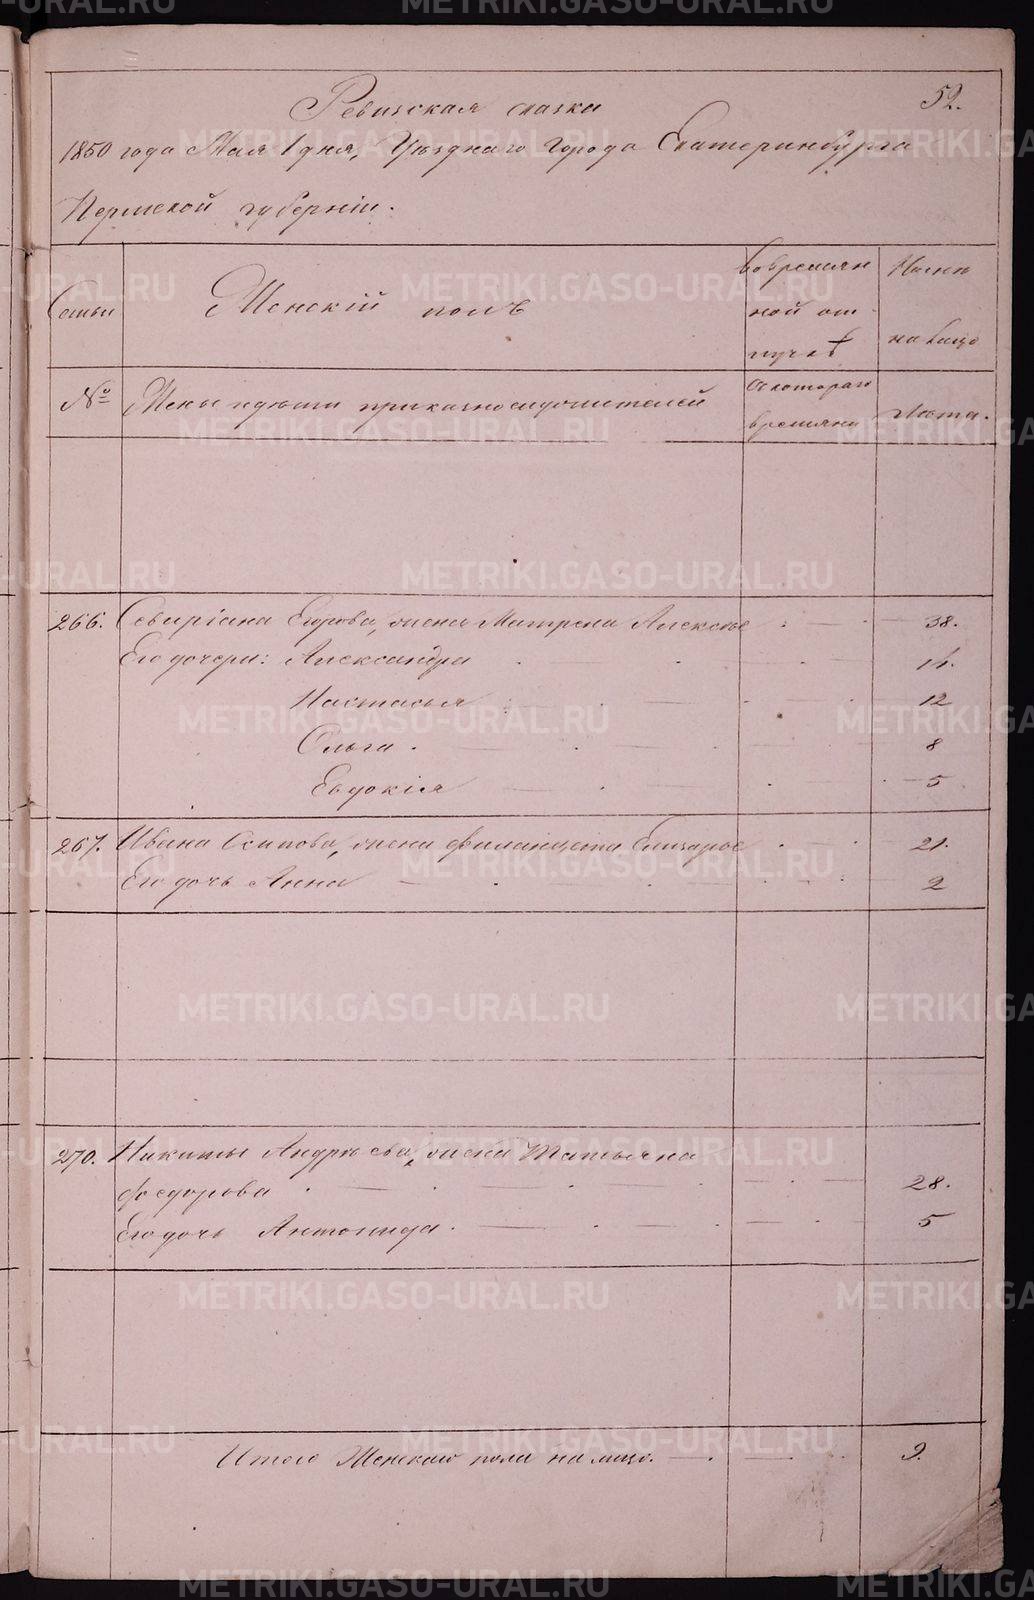 52.
Ревизская сказка
1850 года Мая 1 дня, Уезднаго Города Екатеринбурга
Пермской губерніи.
Семьи
Женскій полъ
во времян
ной от
пучкѣ
Ныне
на лицо
№
Жены и дети приказнослужителей
Съ котораго
времяни
Лета.
266. Севиріана Егорова, жена Матрена Алексѣе 38.
Его дочери: Александра 14.
Настасья 12
Ольга 8
Евдокія 5
267. Ивана Осипова, жена Филанцета Елизарье 21.
Его дочь Анна 2
270. Никиты Андрѣева, жена Татьяна
Федорова 28.
Его дочь Антонида. 5
Итого Женскаго пола на лицо. 9.
METRIKI.GASO-URAL.RU